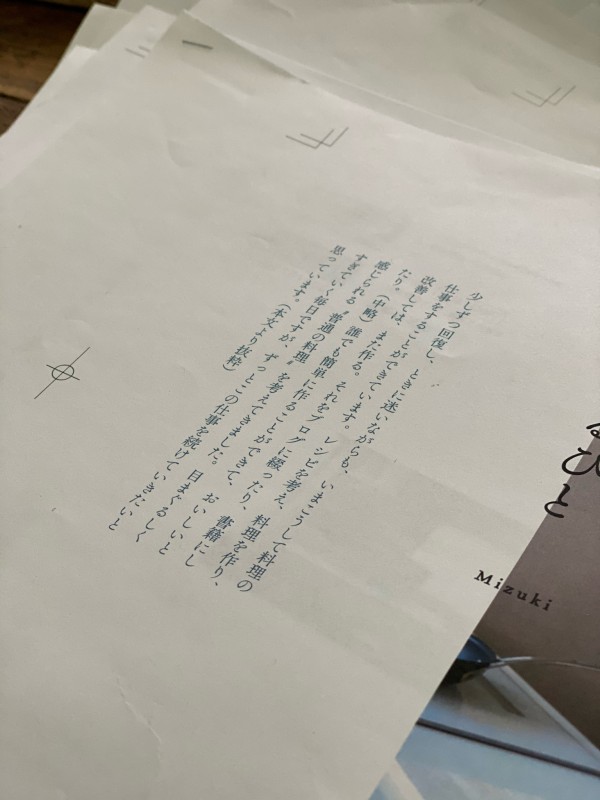 少しずつ回復し、ときに迷いながらも、いまこうして料理の
仕事をすることができています。レシピを考え、料理を作り、
改善しては、また作る。それをブログに綴ったり、書籍にし
たり。（中略）誰でも簡単に作ることができて、おいしいと
感じられる〝普通の料理〟を考えてきました。目まぐるしく
すぎていく毎日ですが、ずっとこの仕事を続けていきたいと
思っています。（本文より抜粋）
るひと
Mizuki